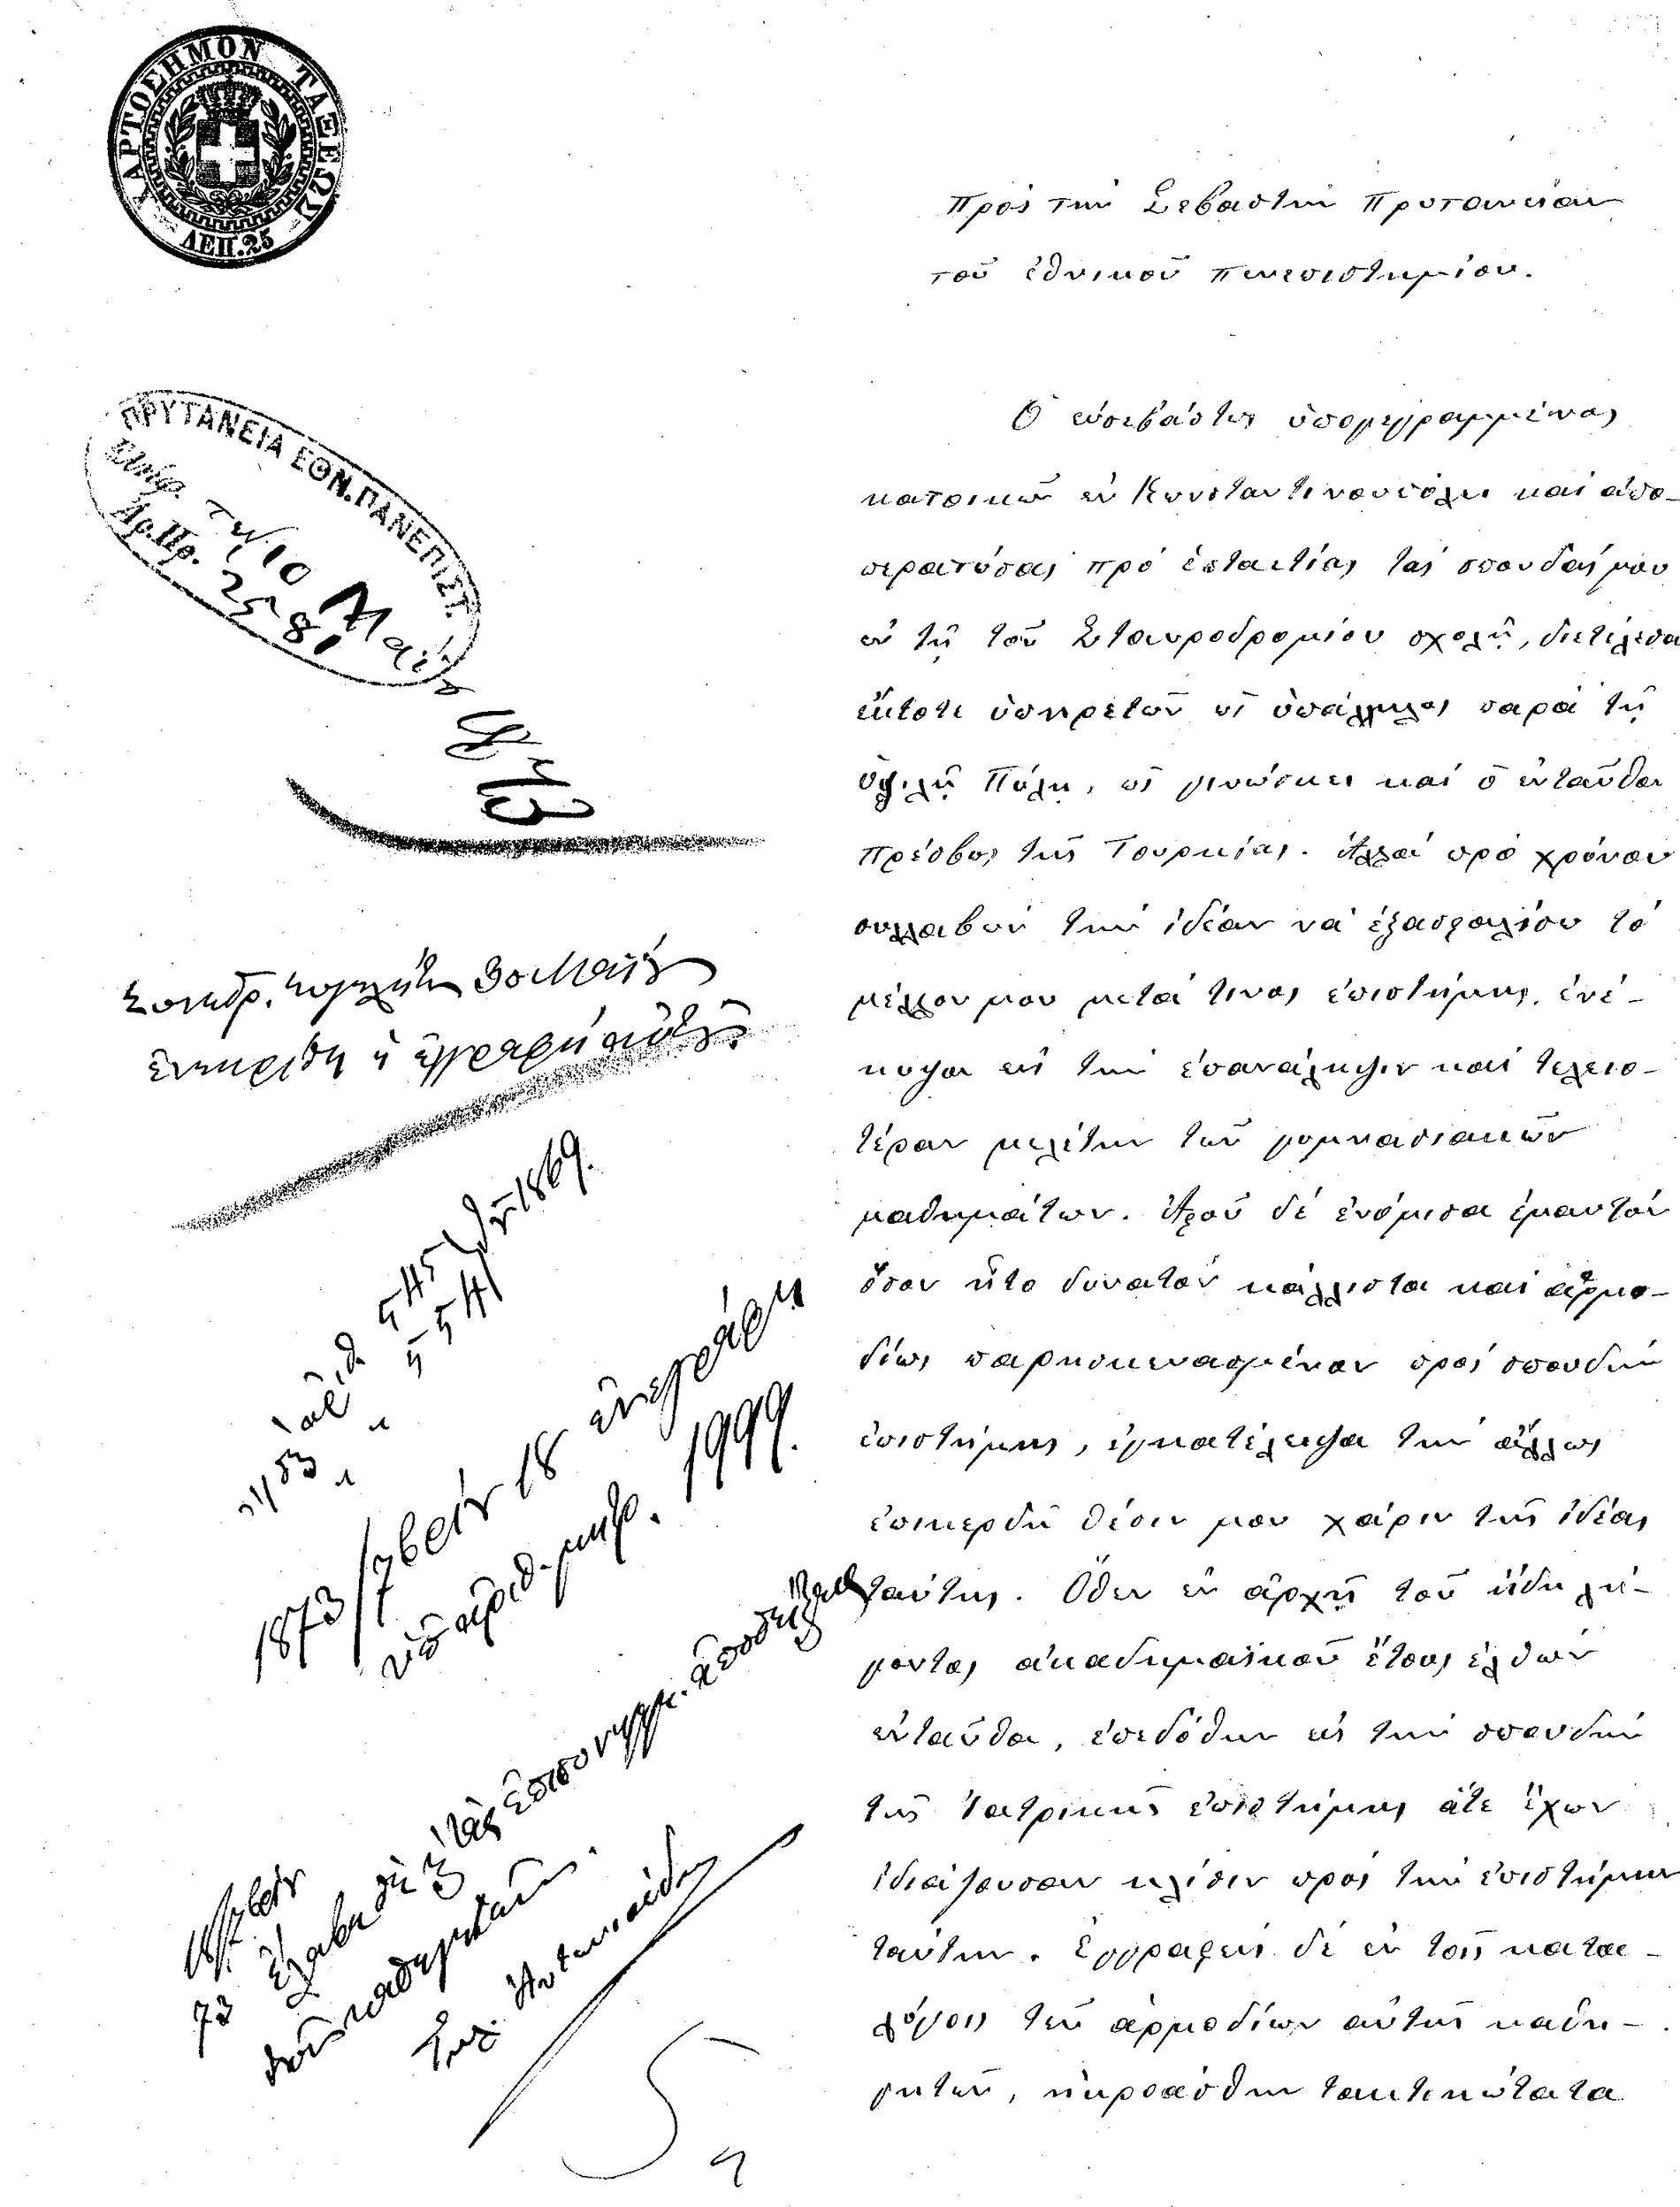 ΧΑΡΤΟΣΗΜΟΝ ΤΑΞΕΩΣ
ΛΕΠ.25
Πρὸς τὴν Σεβαστὴν Πρυτανείαν
τοῦ ἐθνικοῦ πανεπιστημίου.
ΠΡΥΤΑΝΕΙΑ ΕΘΝ.ΠΑΝΕΠΙΣΤ.
τῇ 10 Μαΐου
Ἀρ.Πρ. 2581
Ὁ εὐσεβάστως ὑπογεγραμμένος
κατοικῶν ἐν Κωνσταντινουπόλει καὶ ἀπο-
περατώσας πρὸ ἑπταετίας τὰς σπουδάς μου
ἐν τῇ τοῦ Σταυροδρομίου σχολῇ, διετέλεσα
ἔκτοτε ὑπηρετῶν ὡς ὑπάλληλος παρὰ τῇ
ὑψηλῇ Πύλῃ, ὡς γινώσκει καὶ ὁ ἐνταῦθα
πρέσβυς τῆς Τουρκίας. Ἀλλὰ πρὸ χρόνου
συλλαβὼν τὴν ἰδέαν νὰ ἐξασφαλίσω τὸ
μέλλον μου μετά τινος ἐπιστήμης, ἐνέ-
κυψα εἰς τὴν ἐπανάληψιν καὶ τελειο-
τέραν μελέτην τῶν γυμνασιακῶν
μαθημάτων. Ἀφοῦ δὲ ἐνόμισα ἐμαυτὸν
ὅσον ἦτο δυνατὸν κάλλιστα καὶ ἁρμο-
δίως παρεσκευασμένον πρὸς σπουδὴν
ἐπιστήμης, ἐγκατέλειψα τὴν ἄλλως
ἐπικερδῆ θέσιν μου χάριν τῆς ἰδέας
ταύτης. Ὅθεν ἐν ἀρχῇ τοῦ ἤδη λή-
γοντος ἀκαδημαϊκοῦ ἔτους ἐλθὼν
ἐνταῦθα, ἐπεδόθην εἰς τὴν σπουδὴν
τῆς Ἰατρικῆς ἐπιστήμης ἅτε ἔχων
ἰδιάζουσαν κλίσιν πρὸς τὴν ἐπιστήμην
ταύτην. Ἐγγραφεὶς δὲ ἐν τοῖς κατα-
λόγοις τῶν ἁρμοδίων αὐτῆς καθη-
γητῶν, ἠκροάσθην τακτικώτατα
30 Μαΐου
ἐνεκρίθη ἡ ἐγγραφὴ αὐτοῦ
1869.
1873 18 ἐνεγράφη
ὑπ' ἀριθ. μητρ. 1999.
73 ἔλαβον